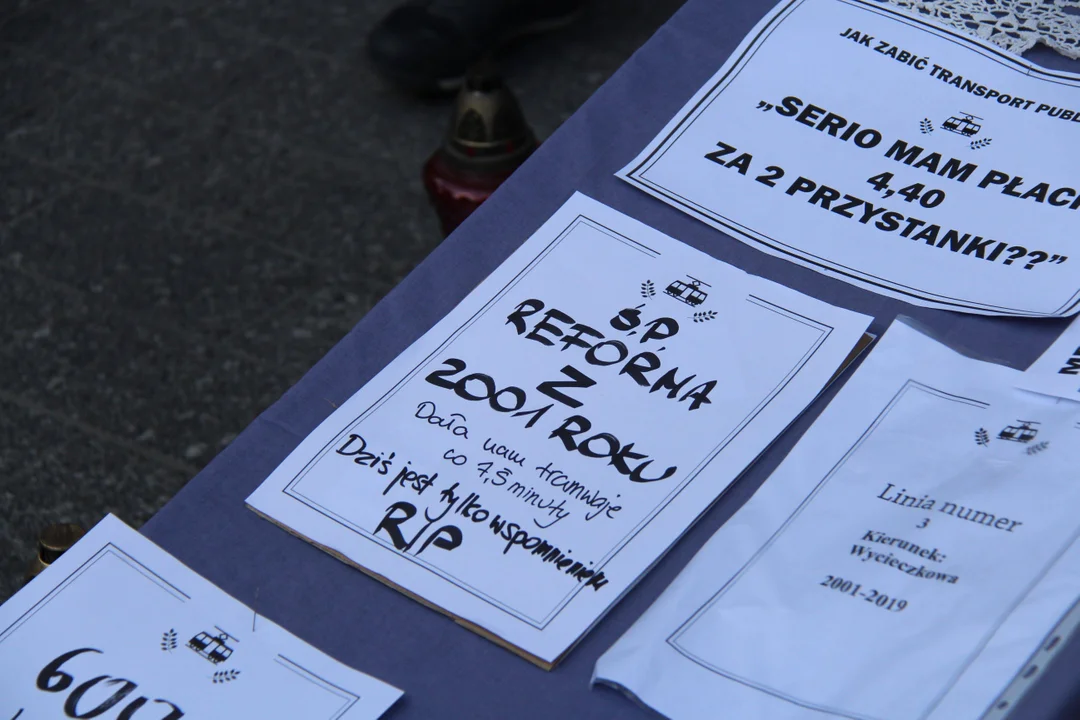 JAK ZABIĆ TRANSPORT
„SERIO MAM
4,40
ZA 2 PRZYSTANKI??”
Ś.P.
REFORMA
Z
2001 ROKU
Dała nam tramwaje
co 7,5 minuty
Dziś jest tylko wspomnieniem
RIP
Linia numer
3
Kierunek:
Wycieczkowa
2001-2019